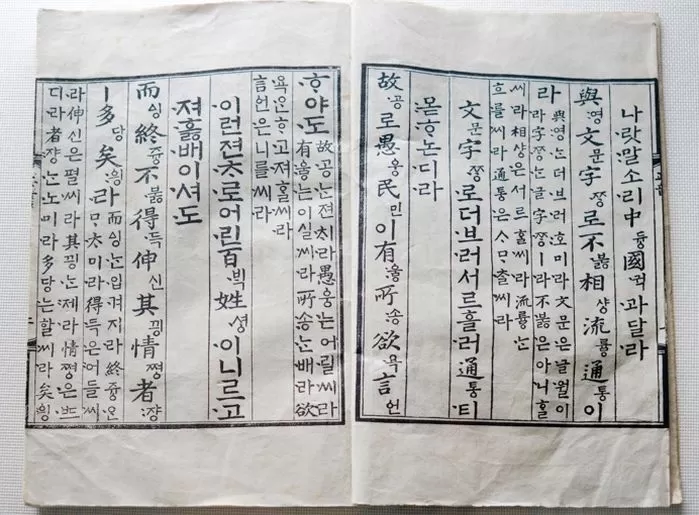 나랏말소리中듕國귁과달라
與영文문字ᄍᆞᆼ로不부ᇙ相샹流류ᇢ通통이
라
與영는더브러호미라文문은글월이
라字ᄍᆞᆼ는글字ᄍᆞᆼㅣ라不부ᇙ은아니홀
씨라相샹은서르홀씨라流류ᇢ는
흐를씨라通통은ᄉᆞᄆᆞᄎᆞᆯ씨라
文문字ᄍᆞᆼ로더브러서르흘러通통티
몯ᄒᆞ논디라
故공로愚ᅌᅮᆼ民민이有우ᇢ所송欲욕言언
ᄒᆞ야도
故공ᄂᆞᆫ젼ᄎᆡ라愚ᅌᅮᆼ는어릴씨라
有우ᇢ는이실씨라所송ᄂᆞᆫ배라欲
욕은ᄒᆞ고져홀씨라
言언은니를씨라
이런젼ᄎᆞ로어린百ᄇᆡᆨ姓셩이니르고
져홇배이셔도
而ᅀᅵᆼ終즁不부ᇙ得득伸신其끵情쪙者쟝
ㅣ多당矣ᅌᅴᆼ라
而ᅀᅵᆼ는입겨지라終즁은
ᄆᆞᄎᆞ미라得득은어들씨
라伸신은펼씨라其끵는제라情쪙은ᄠᅳ
디라者쟝는노미라多당는할씨라矣ᅌᅴᆼ